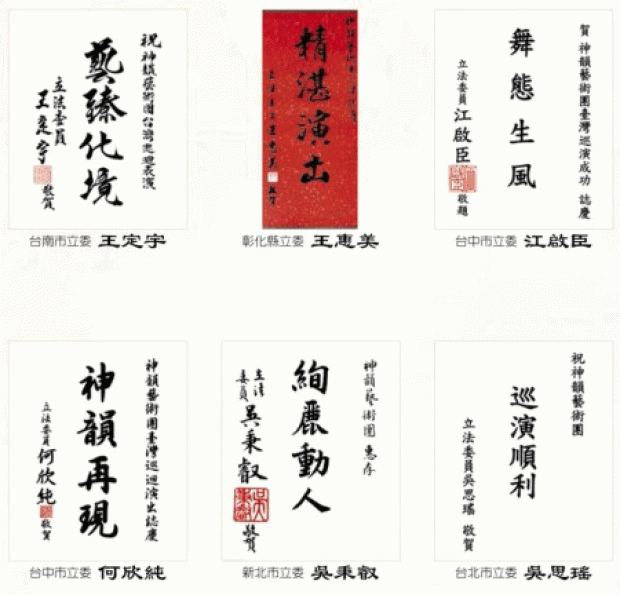 祝神韻藝術團台灣巡迴表演
藝臻化境
立法委員
王定宇
敬賀
台南市立委 王定宇
精湛演出
敬賀
彰化縣立委 王惠美
賀 神韻藝術團臺灣巡演成功 誌慶
舞態生風
立法委員 江啟臣
敬題
台中市立委 江啟臣
神韻藝術團臺灣巡迴演出誌慶
神韻再現
立法委員 何欣純 敬賀
台中市立委 何欣純
神韻藝術團 惠存
絢麗動人
立法
委員 吳秉叡
敬賀
新北市立委 吳秉叡
祝神韻藝術團
巡演順利
立法委員吳思瑤 敬賀
台北市立委 吳思瑤